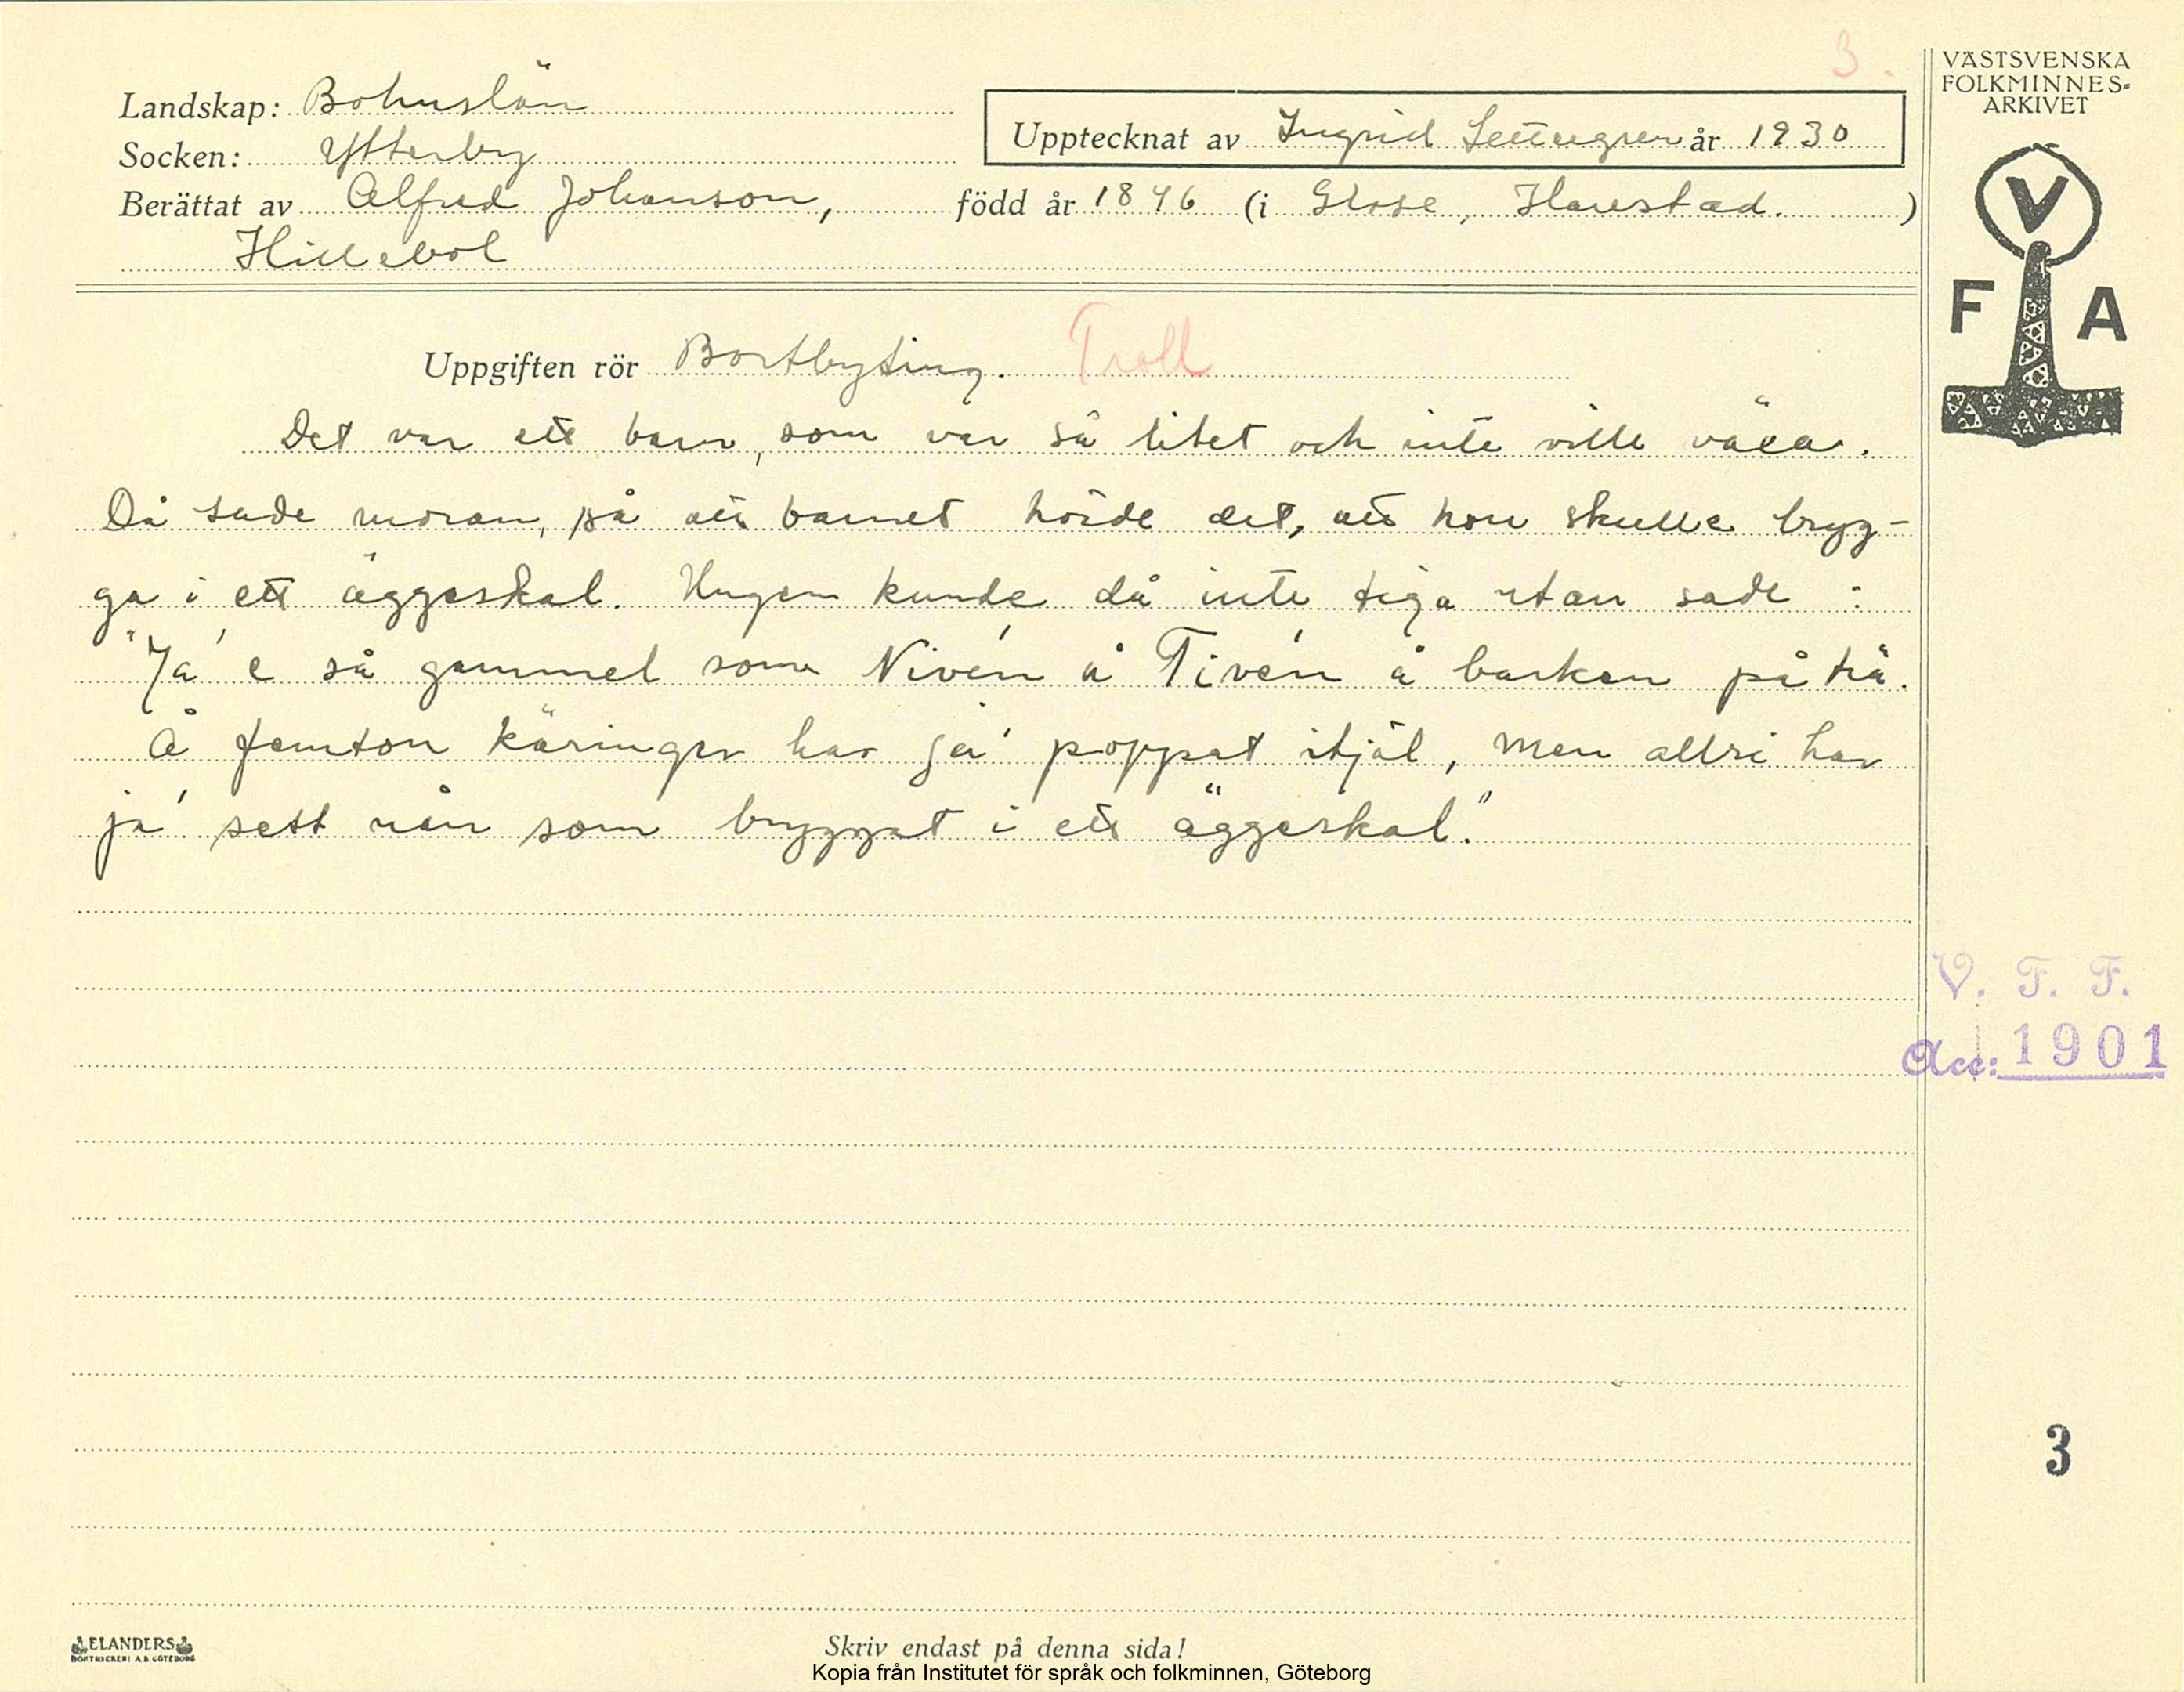 3.
VÄSTSVENSKA
FOLKMINNES-
ARKIVET
Landskap: Bohuslän
Upptecknat av Ingrid år 1930
Socken: Ytterby
Berättat av Alfred Johanson, född år 1846 (i Harestad.)
Hillebol
V
F A
Uppgiften rör Bortbyting. Troll
Det var ett barn, som var så litet och inte ville växa.
Då sade moran, så att barnet hörde det, att hon skulle bryg-
ga i ett äggeskal. Ungen kunde då inte tiga utan sade :
"Ja' e så gammel som Nivén å Tivén å barken på trä.
Å femton käringer har ja' poppat itjäl, men allri har
ja' sett nån som bryggat i ett äggeskal."
V. F. F.
Acc: 1901
3
ELANDERS
BOKTRYCKERI A.B. GÖTEBORG
Skriv endast på denna sida!
Kopia från Institutet för språk och folkminnen, Göteborg